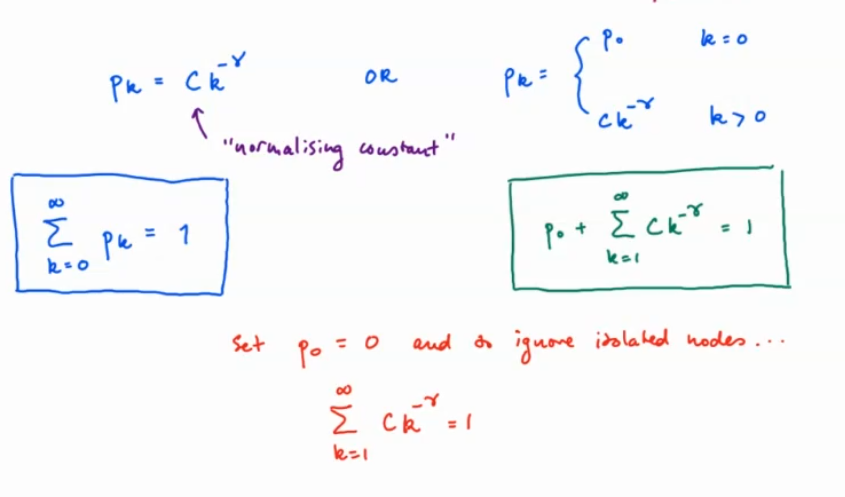 p_k = C k^{-γ} OR p_k = { p_0 k = 0
C k^{-γ} k > 0
"normalising constant"
∑_{k=0}^{∞} p_k = 1
p_0 + ∑_{k=1}^{∞} C k^{-γ} = 1
Set p_0 = 0 and so ignore isolated nodes...
∑_{k=1}^{∞} C k^{-γ} = 1